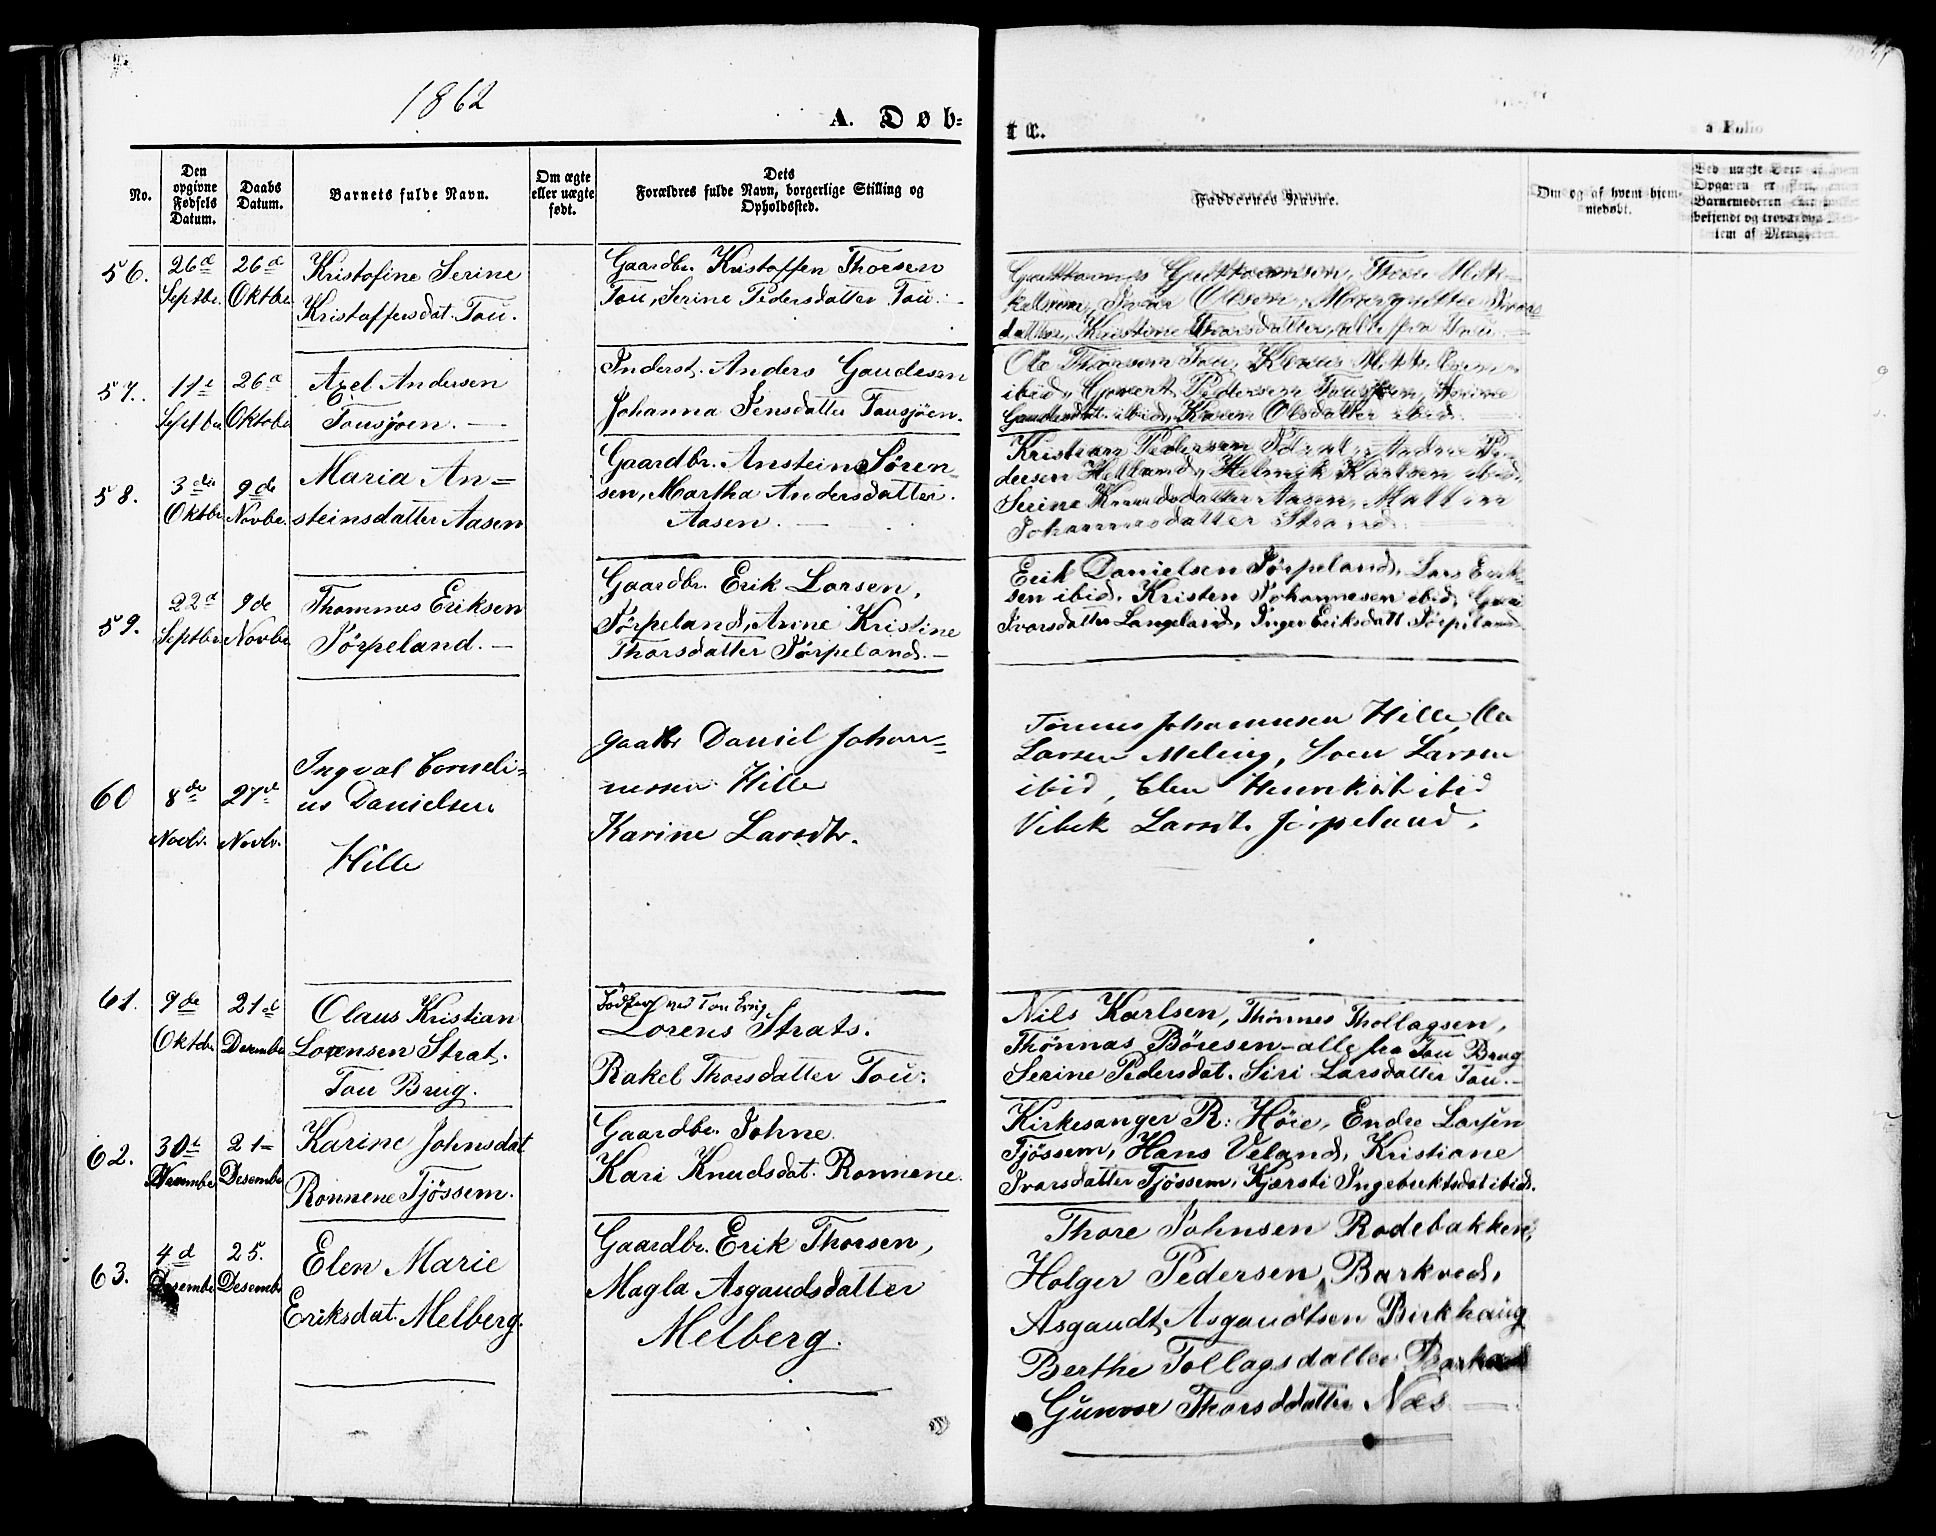 1862
A. Døb=
te.
a Folio
No.
Den opgivne Fødsels Datum.
Daabs Datum.
Barnets fulde Navn.
Om ægte eller uægte født.
Dets Forældres fulde Navn, borgerlige Stilling og Opholdssted.
Faddernes Navne.
Om og af hvem hjem-
medøbt.
56.
26d Septbr.
26d Oktbr.
Kristofine Serine
Kristoffersdat. Tou.
Gaardbr. Kristoffen Thorsen
Tou, Serine Pedersdatter Tou.
datter, Kristine Thorsdatter, alle fra Tou.
57.
11t Septbr
26d Oktobr
Axel Andersen
Tousjøen.
Inderst. Anders Gaudesen
Johanna Jensdatter Tousjöen.
Ole Thorsen Tou, Klaus
ibid, Govert Pedersen Tousjøen,
Gaudesdat. ibid, Karen Olsdatter ibid.
58.
3die Oktbr
9de Novbr.
Maria An=
steinsdatter Aasen
Gaardbr. Anstein Sören=
sen, Martha Andersdatter.
Aasen.
Kristian Pedersen
dersen Helland, Helmik Karlsen ibid.
Serine Knudsdatter Aasen,
Johannesdatter Strand
59.
22d Septbr
9de Novbr
Thommas Eriksen
Jörpeland.
Gaardbr. Erik Larsen,
Jörpeland, Anne Kristine
Thorsdatter Jörpeland.
Erik Danielsen Jørpeland, Lars Erik-
sen ibid, Kristen Johannesen ibid,
Ivarsdatter Langeland, Inger Eriksdatt Jörpeland
60
8de Novbr.
27de Novbr.
Ingval Corneli=
us Danielsen
Hille
gaardbr Daniel Johan=
nessen Hille
Karine Larsdtr.
Tönnes Johannesen Hille, Ole
Larsen Meling, Soen Larsen
ibid, Elen ibid
Vibek Larsdt. Jörpeland.
61.
9de Oktbr
21de Desembr
Olaus Kristian
Lorensen Strat.
Tou Brug.
Bødker ved Tou Brug
Lorens Strats.
Rakel Thorsdatter Tou:
Nils Karlsen, Thönnes Thollagsen,
Thönnas Böresen - alle fra Tou Brug
Serine Pedersdat. Siri Larsdatter Tou.
62.
30t Novembr
21= Desembr
Karine Johnsdat
Ronnene Tjössem.
Gaardbr. Johne
Kari Knudsdat. Ronnene.
Kirkesanger R: Höie, Endre Larsen
Tjössem, Hans Veland, Kristiane
Ivarsdatter Tjössem, Kjersti Ingebriktsdat ibid.
63.
4d Desembr
25. Desembr
Elen Marie
Eriksdat. Melberg.
Gaardbr. Erik Thorsen,
Magla Asgaudsdatter
Melberg.
Thore Johnsen Rodebakken,
Holger Pedersen, Barkved,
Asgaudt Asgaudtsen Birkhaug
Berthe Tollagsdatter
Gunvor Thorsddatter Næs